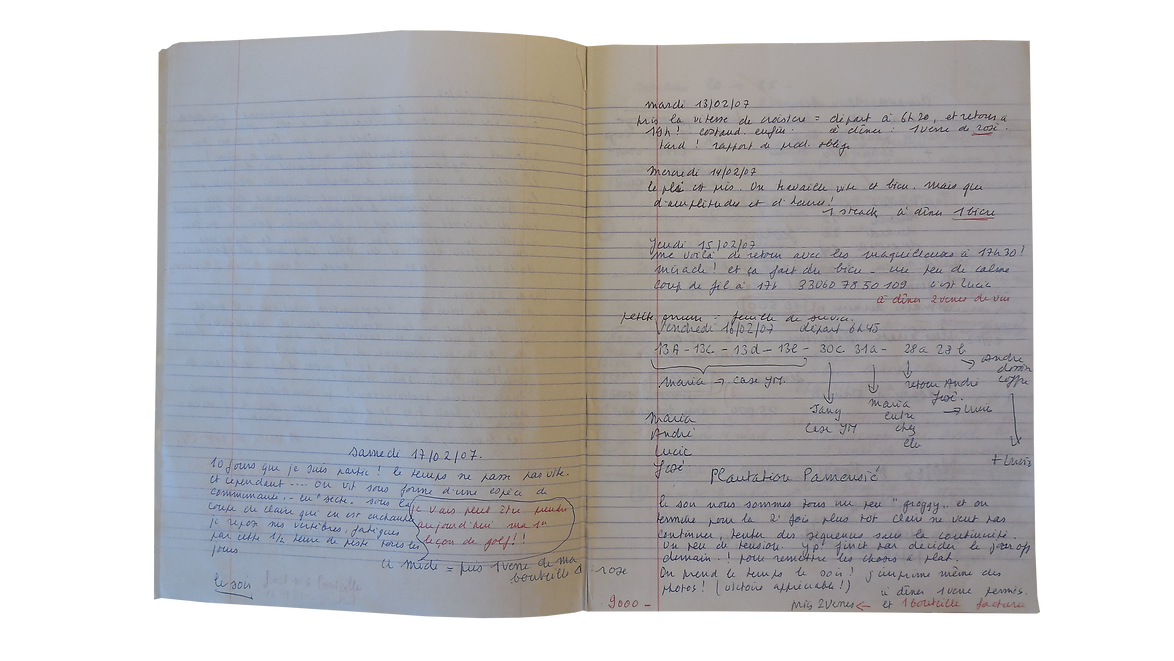 samedi 17/02/07.
10 jours que je suis partie ! le temps ne passe pas vite.
et cependant .... on vit sous forme d'une espèce de
communauté .- en "secte" sous la
coupe de claire qui en est enchantée
je repose mes vertèbres, fatiguées
par cette 1/2 heure de piste tous les
jours
je vais peut être prendre
aujourd'hui ma 1e
leçon de golf !!
à midi = pris 1 verre de ma
bouteille de rose
le soir
mardi 13/02/07
pris la vitesse de croisière = départ à 6h20, et retour à
19h ! costaud. enfin. à dîner : 1 verre de rosé.
tard ! rapport de prod. oblige
mercredi 14/02/07
le pli est pris. On travaille vite et bien. mais que
d'amplitudes et d'heures !
1 steack à dîner 1 bière
Jeudi 15/02/07
me voilà de retour avec les maquilleuses à 17h30 !
miracle ! et ça fait du bien - un peu de calme
coup de fil à 17h 33060 78 50 109 c'est Lucie
à dîner 2 verres de vin
petite prison = feuille de service.
Vendredi 16/02/07 départ 6h45
13A - 13C - 13d - 13e - 30c 31a - 28a 28b
Maria → case YM.
Tany
case YM
Maria
entre
chez
elle
retour André
José.
→ Lucie
André
dessin
coffre
+ Lucie
Maria
André
Lucie
José
Plantation
le soir nous sommes tous un peu "groggy" et on
termine pour la 2e fois plus tôt Claire ne veut pas
continuer, tenter des séquences sans la continuité.
Un peu de tension. YP finit par décider le jour off
demain ! pour remettre les choses à plat.
On prend le temps le soir ! j'imprime même des
photos ! (victoire appréciable !)
à dîner 1 verre permis.
pris 2 verres ← et 1 bouteille facture
9000 -